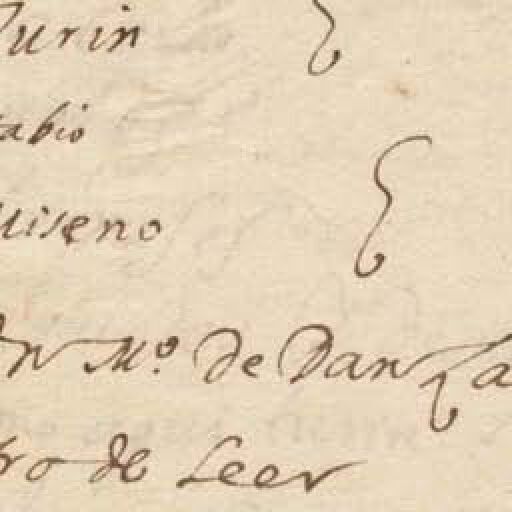 Turin
abio
Miseno
Un Mº. de Danza
ro de Leer